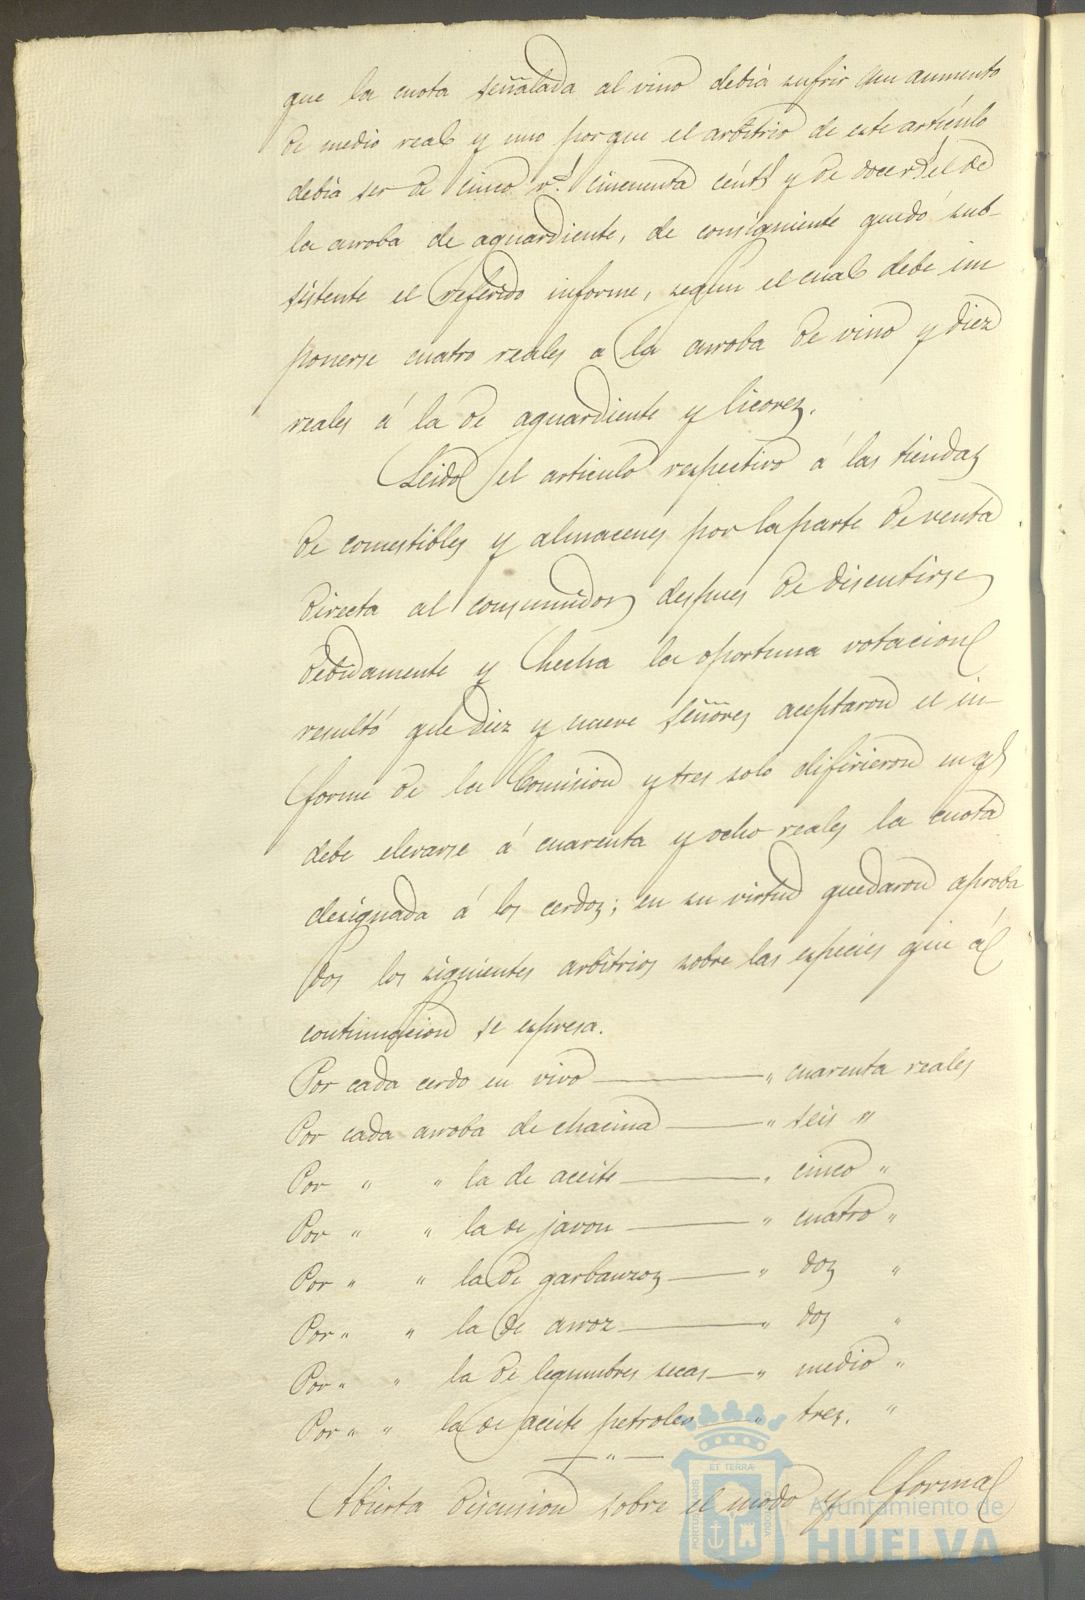 que la cuota señalada al vino debia sufrir un aumento
de medio real y uno porque el arbitrio de este artículo
debia ser de cinco rs. cincuenta cénts y de doce rs el de
la arroba de aguardiente, de consiguiente quedó sub-
sistente el referido informe, segun el cual debe im
ponerse cuatro reales a la arroba de vino y diez
reales á la de aguardiente y licorez.
Leido el articulo respectivo á las tiendaz
de comestibles y almacenes por la parte de venta
directa al consumidor, despues de discutirse
debidamente y hecha la oportuna votacion
resultó que diez y nueve señores aceptaron el in-
forme de la Comision y tres solo difirieron en qe
debe elevarse á cuarenta y ocho reales la cuota
designada á los cerdoz; en su virtud quedaron aproba
dos los siguientes arbitrios sobre las especies que á
continuacion se espresa.
Por cada cerdo en vivo ——— " cuarenta reales
Por cada arroba de chacina ——— " seis "
Por " " la de aceite ——— " cinco "
Por " " la de javon ——— " cuatro "
Por " " la de garbanzoz ——— " doz "
Por " " la de arroz ——— " dos "
Por " " la de legumbres secas — " medio "
Por " " la de aceite petroleo " trez. "
— " —
Abierta discusion sobre el modo y forma
ET TERRÆ
PORTUS MARIS
CUSTODIA
Ayuntamiento de
HUELVA